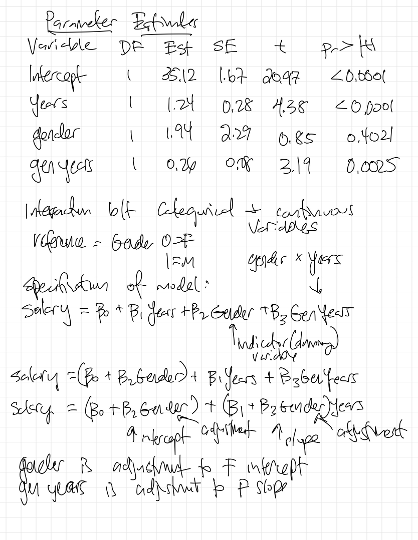 Parameter Estimates
Variable DF Est SE t Pr > |t|
Intercept 1 35.12 1.67 20.97 <0.0001
years 1 1.24 0.28 4.38 <0.0001
gender 1 1.94 2.29 0.85 0.4021
genyears 1 0.26 0.08 3.19 0.0025
Interaction b/t Categorical + continuous
variables
reference = Gender 0=F
1=M gender x years
Specification of model:
Salary = B0 + B1 Years + B2 Gender + B3 GenYears
indicator (dummy)
variable
Salary = (B0 + B2 Gender) + B1 Years + B3 GenYears
Salary = (B0 + B2 Gender) + (B1 + B3 Gender) Years
intercept adjustment slope adjustment
gender is adjustment to F intercept
gen years is adjustment to F slope